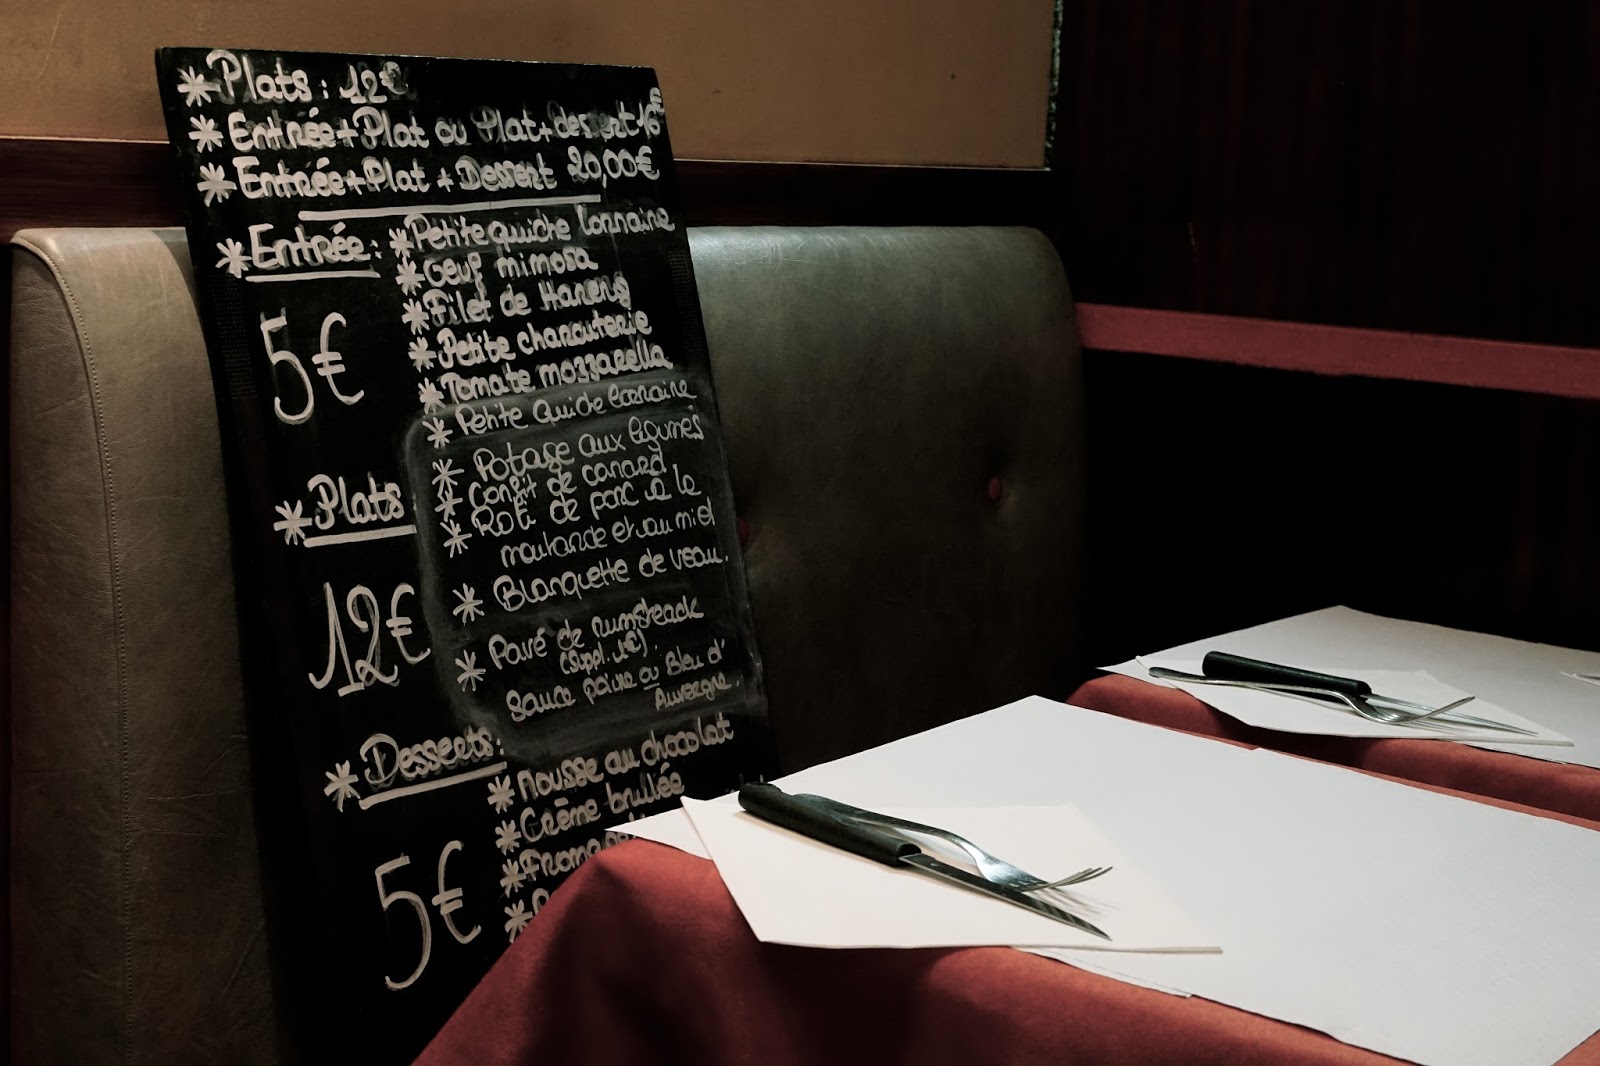 * Plats : 12€
* Entrée+Plat ou Plat+dessert 16€
* Entrée+Plat + Dessert 20,00€
* Entrée : * Petite quiche lorraine
* Oeuf mimosa
* Filet de Hareng
5€
* Petite charcuterie
* Tomate mozzarella
* Petite quiche lorraine
* Potage aux légumes
* Plats
* Confit de canard
* Roti de porc à la
moutarde et au miel
12€
* Blanquette de veau.
* Pavé de rumsteack
(suppl. 1€).
sauce poivre ou Bleu d'
Auvergne.
* Desserts :
* Mousse au chocolat
* Crème brulée
5€